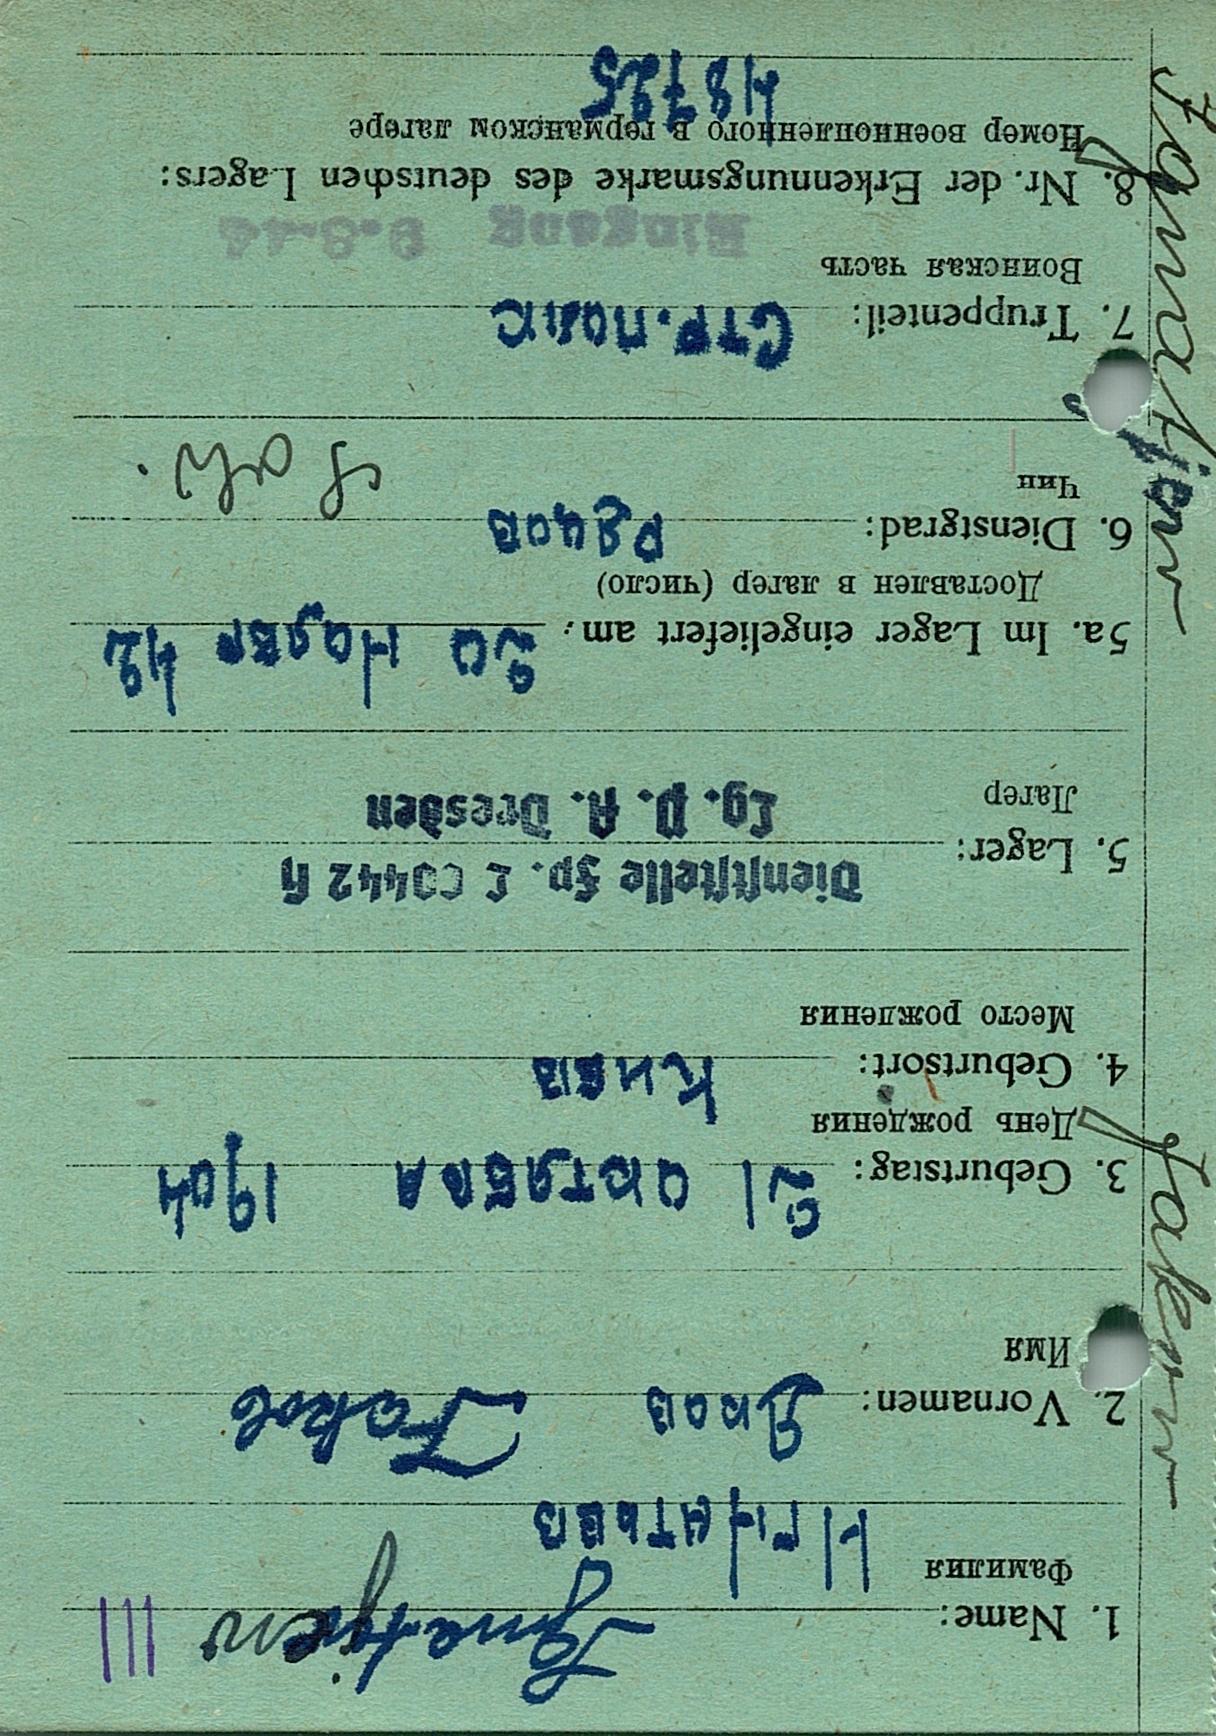 Ignatjew III
1. Name:
Фамилия
Игнатьев
2. Vornamen: Яков Jakob
Имя
3. Geburtstag: 21 октября 1904
День рождения
4. Geburtsort: Киев
Место рождения
Dienststelle Fp. L 00442 H
5. Lager:
Lg. P. A. Dresden
Лагер
5a. Im Lager eingeliefert am: 20 Ноябр 42
Доставлен в лагер (число)
6. Dienstgrad: Рядов
Чин
Sold.
7. Truppenteil: Стр. полк
Воинская часть
Eingang 9.8.44
8. Nr. der Erkennungsmarke des deutschen Lagers:
Номер военнопленного в германском лагере
48725
Jakow Ignatjew